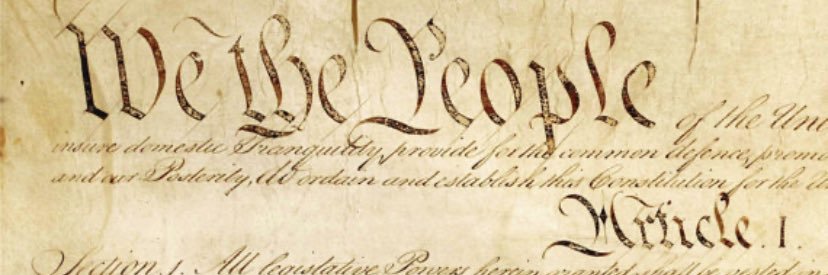 We the People of the Uni
insure domestic Tranquility, provide for the common defence, promo
and our Posterity, do ordain and establish this Constitution for the U
Article. I.
Section. 1. All legislative Powers herein granted shall be vested in